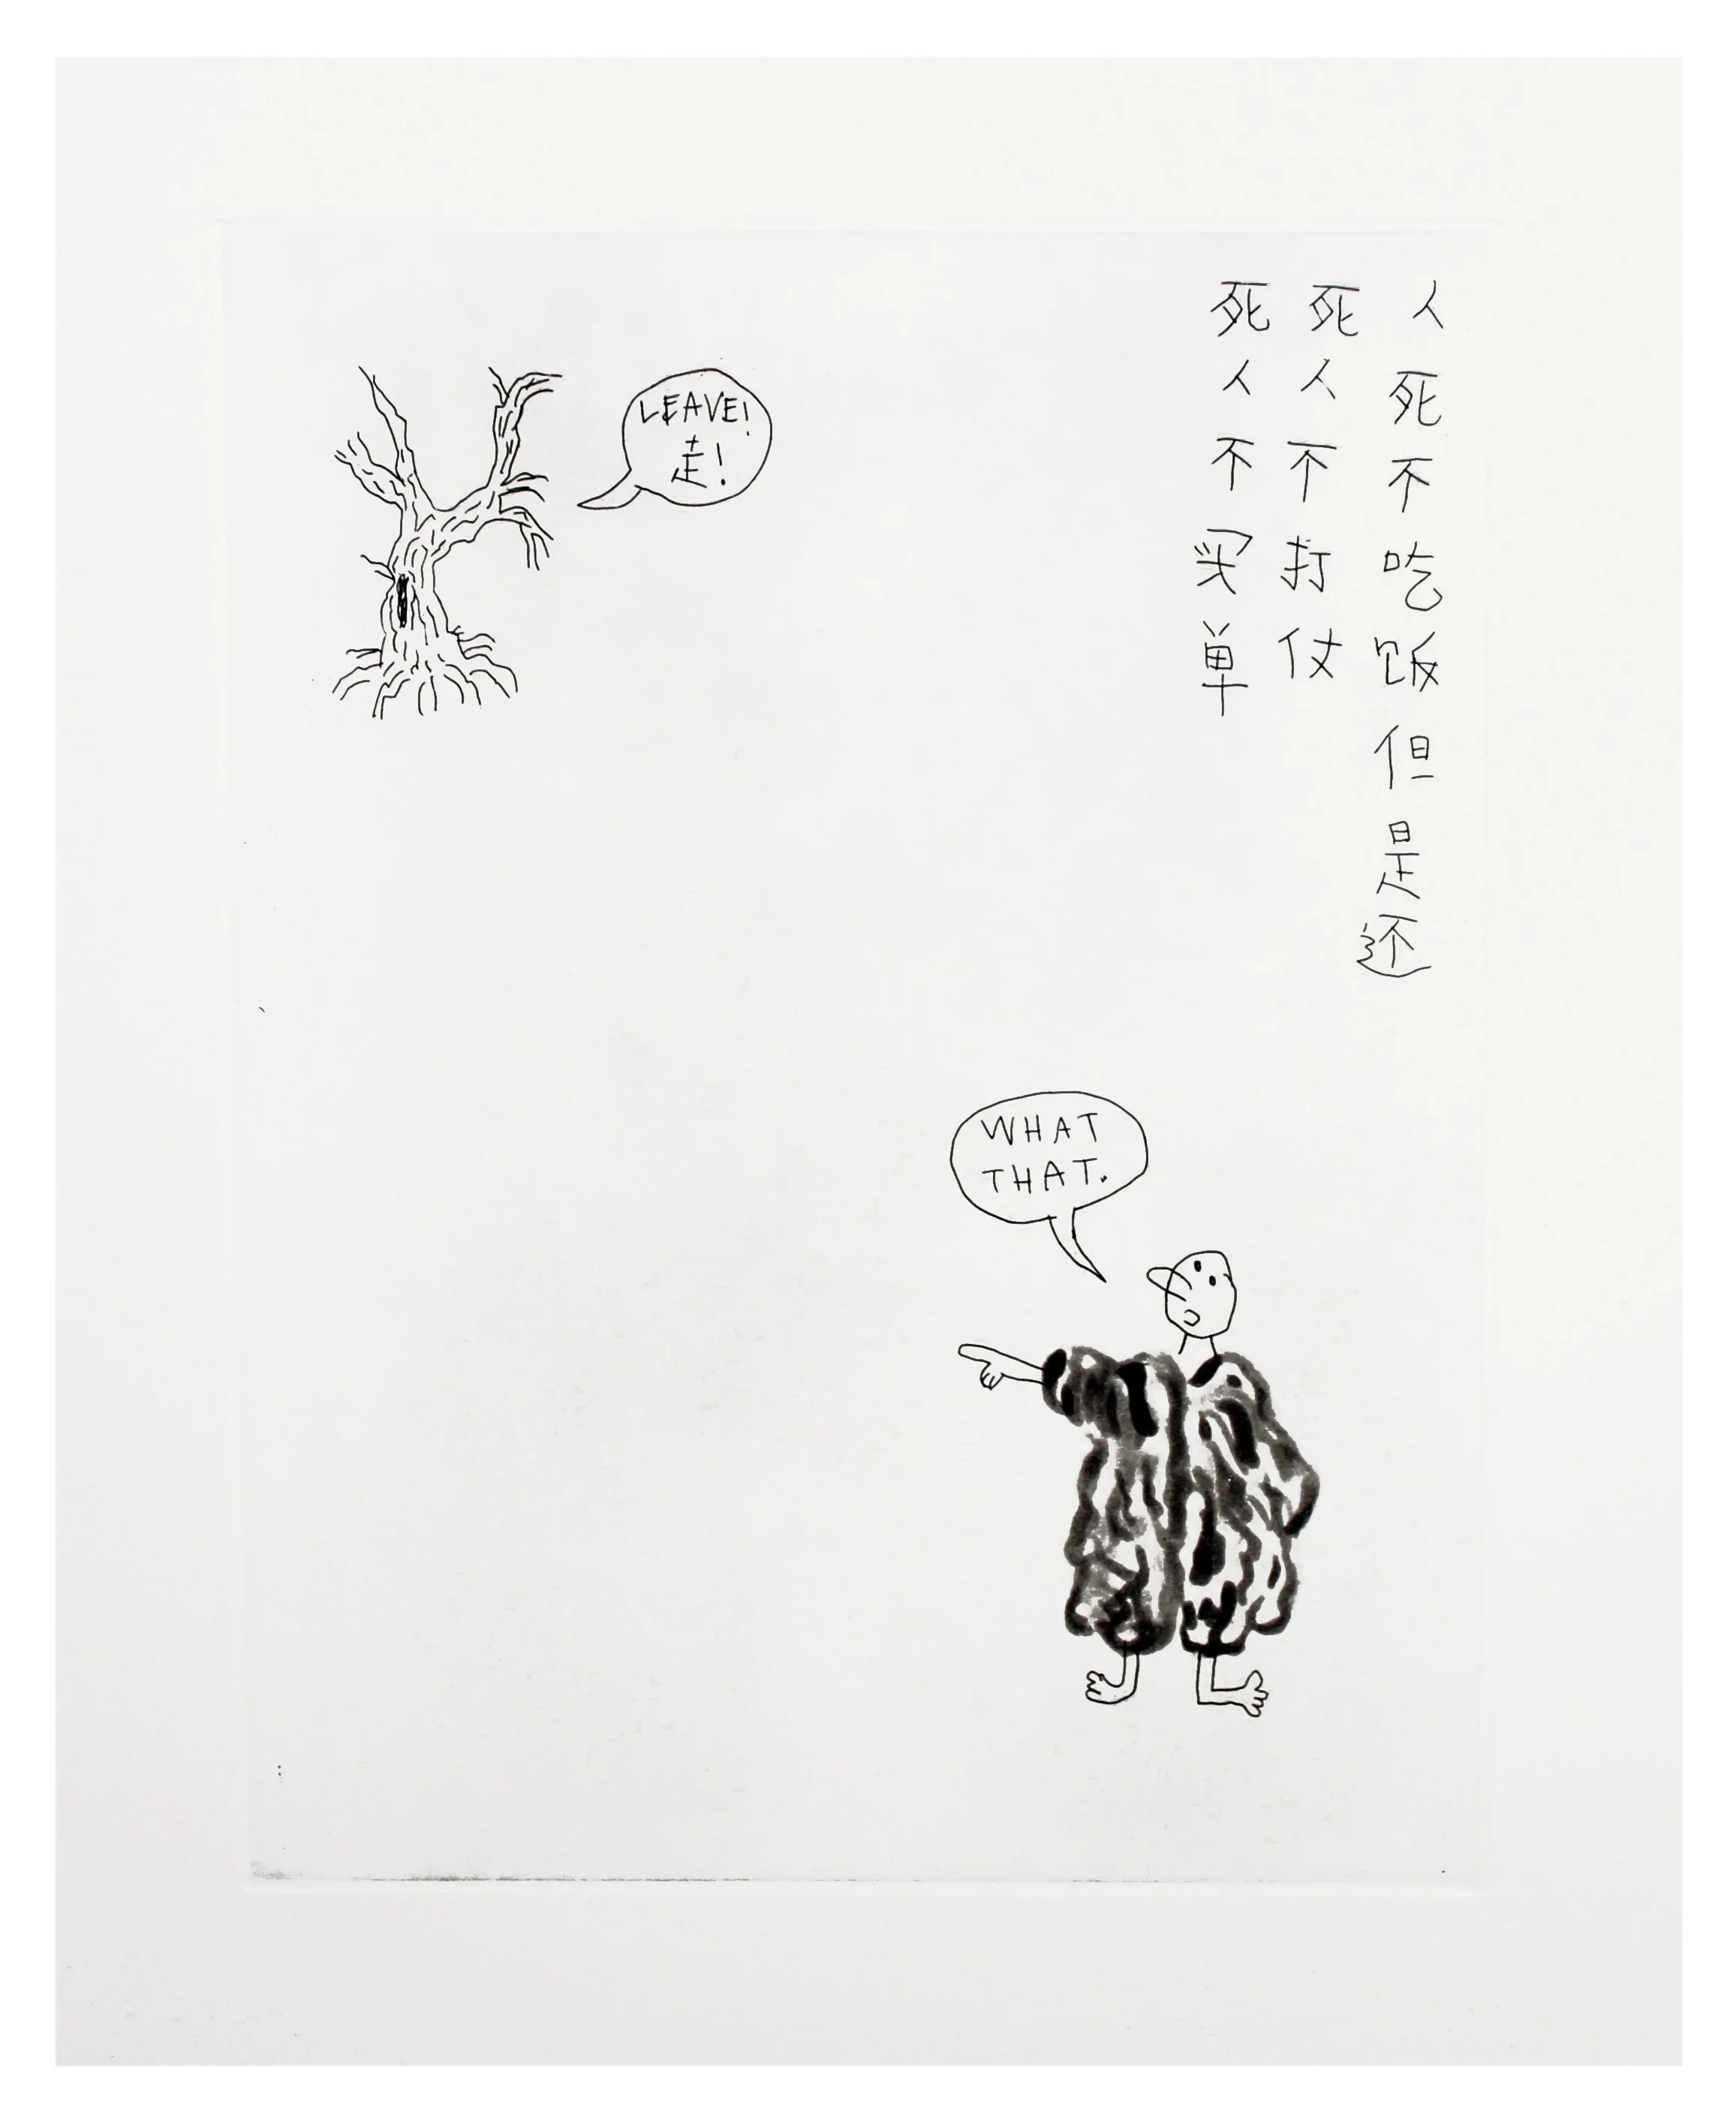 人死不吃饭但是还
死人不打仗
死人不买单
LEAVE!
走!
WHAT
THAT.